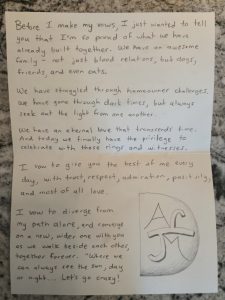 Before I make my vows, I just wanted to tell
you that I'm so proud of what we have
already built together. We have an awesome
family - not just blood relations, but dogs,
friends and even cats.
We have struggled through homeowner challenges,
we have gone through dark times, but always
seek out the light from one another.
We have an eternal love that transcends time.
And today we finally have the privilege to
celebrate with these rings and witnesses.
I vow to give you the best of me every
day, with trust, respect, admiration, positivity,
and most of all love.
I vow to diverge from
my path alone, and converge
on a new, wider one with you
as we walk beside each other,
together forever. "Where we
can always see the sun, day
or night... Let's go crazy!